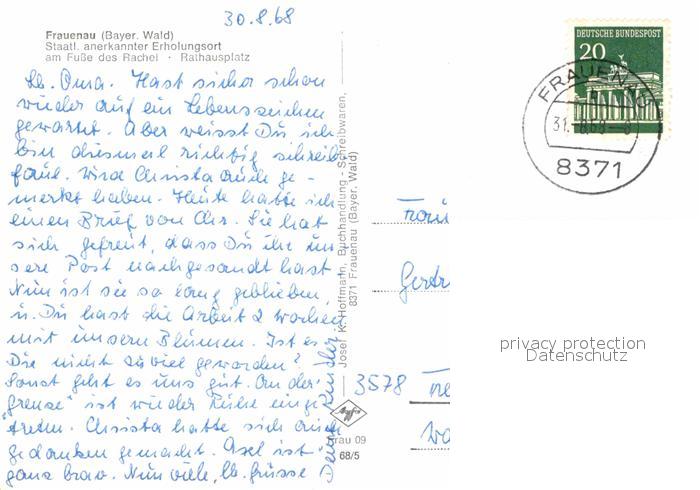 30.8.68
Frauenau (Bayer. Wald)
Staatl. anerkannter Erholungsort
am Fuße des Rachel · Rathausplatz
Lb. Oma. Hast sicher schon
wieder auf ein Lebenszeichen
gewartet. Aber weisst Du ich
bin diesmal richtig schreib
faul. Wird Christa auch ge-
merkt haben. Heute hatte ich
einen Brief von Chr. Sie hat
sich gefreut, dass Du ihr un
sere Post nachgesandt hast.
Nun ist sie so lang geblieben,
u. Du hast die Arbeit 2 Wochen
mit unsern Blumen. Ist es
Dir nicht zu viel geworden?
Sonst geht es uns gut. An der
"Grenze" ist wieder Ruhe einge
treten. Christa hatte sich auch
Gedanken gemacht. Axel ist
ganz brav. Nun viele, lb. Grüsse
Josef K. Hoffmann, Buchhandlung - Schreibwaren,
8371 Frauenau (Bayer. Wald)
Agfa
Frau 09
68/5
DEUTSCHE BUNDESPOST
20
FRAUENAU
31.-8.68-8
8371
Gertr
3578
privacy protection
Datenschutz